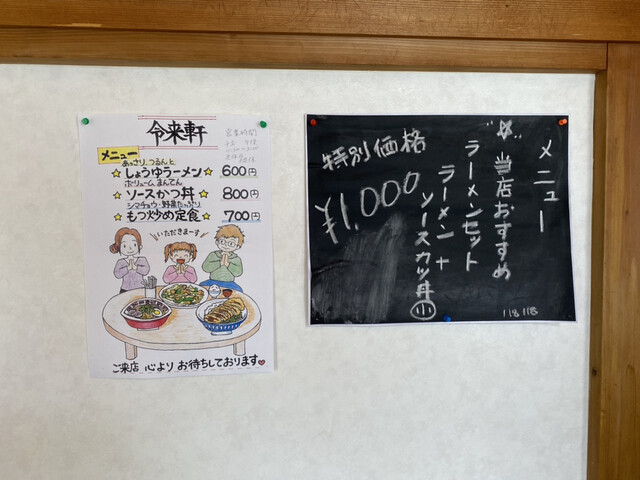 令来軒
営業時間
メニュー
あっさり、つるんと
☆しょうゆラーメン☆ 600円
ボリュームまんてん
☆ソースかつ丼☆ 800円
シマチョウ・野菜たっぷり
☆もつ炒め定食☆ 700円
いただきまーす
ご来店 心より お待ちしております♥
メニュー
☆当店おすすめ
ラーメンセット
ラーメン+
ソースカツ丼小
特別価格
¥1,000